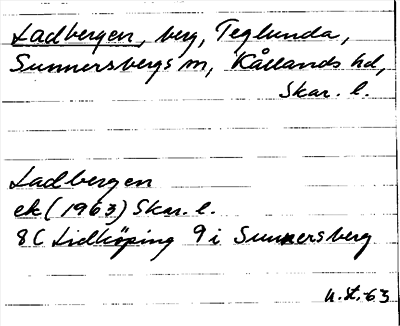 Ladbergen, berg, Teglunda,
Sunnersbergs sn, Kållands hd,
Skar. l.
Ladbergen
ek (1963) Skar. l.
8C Lidköping 9i Sunnersberg
U.St.-63